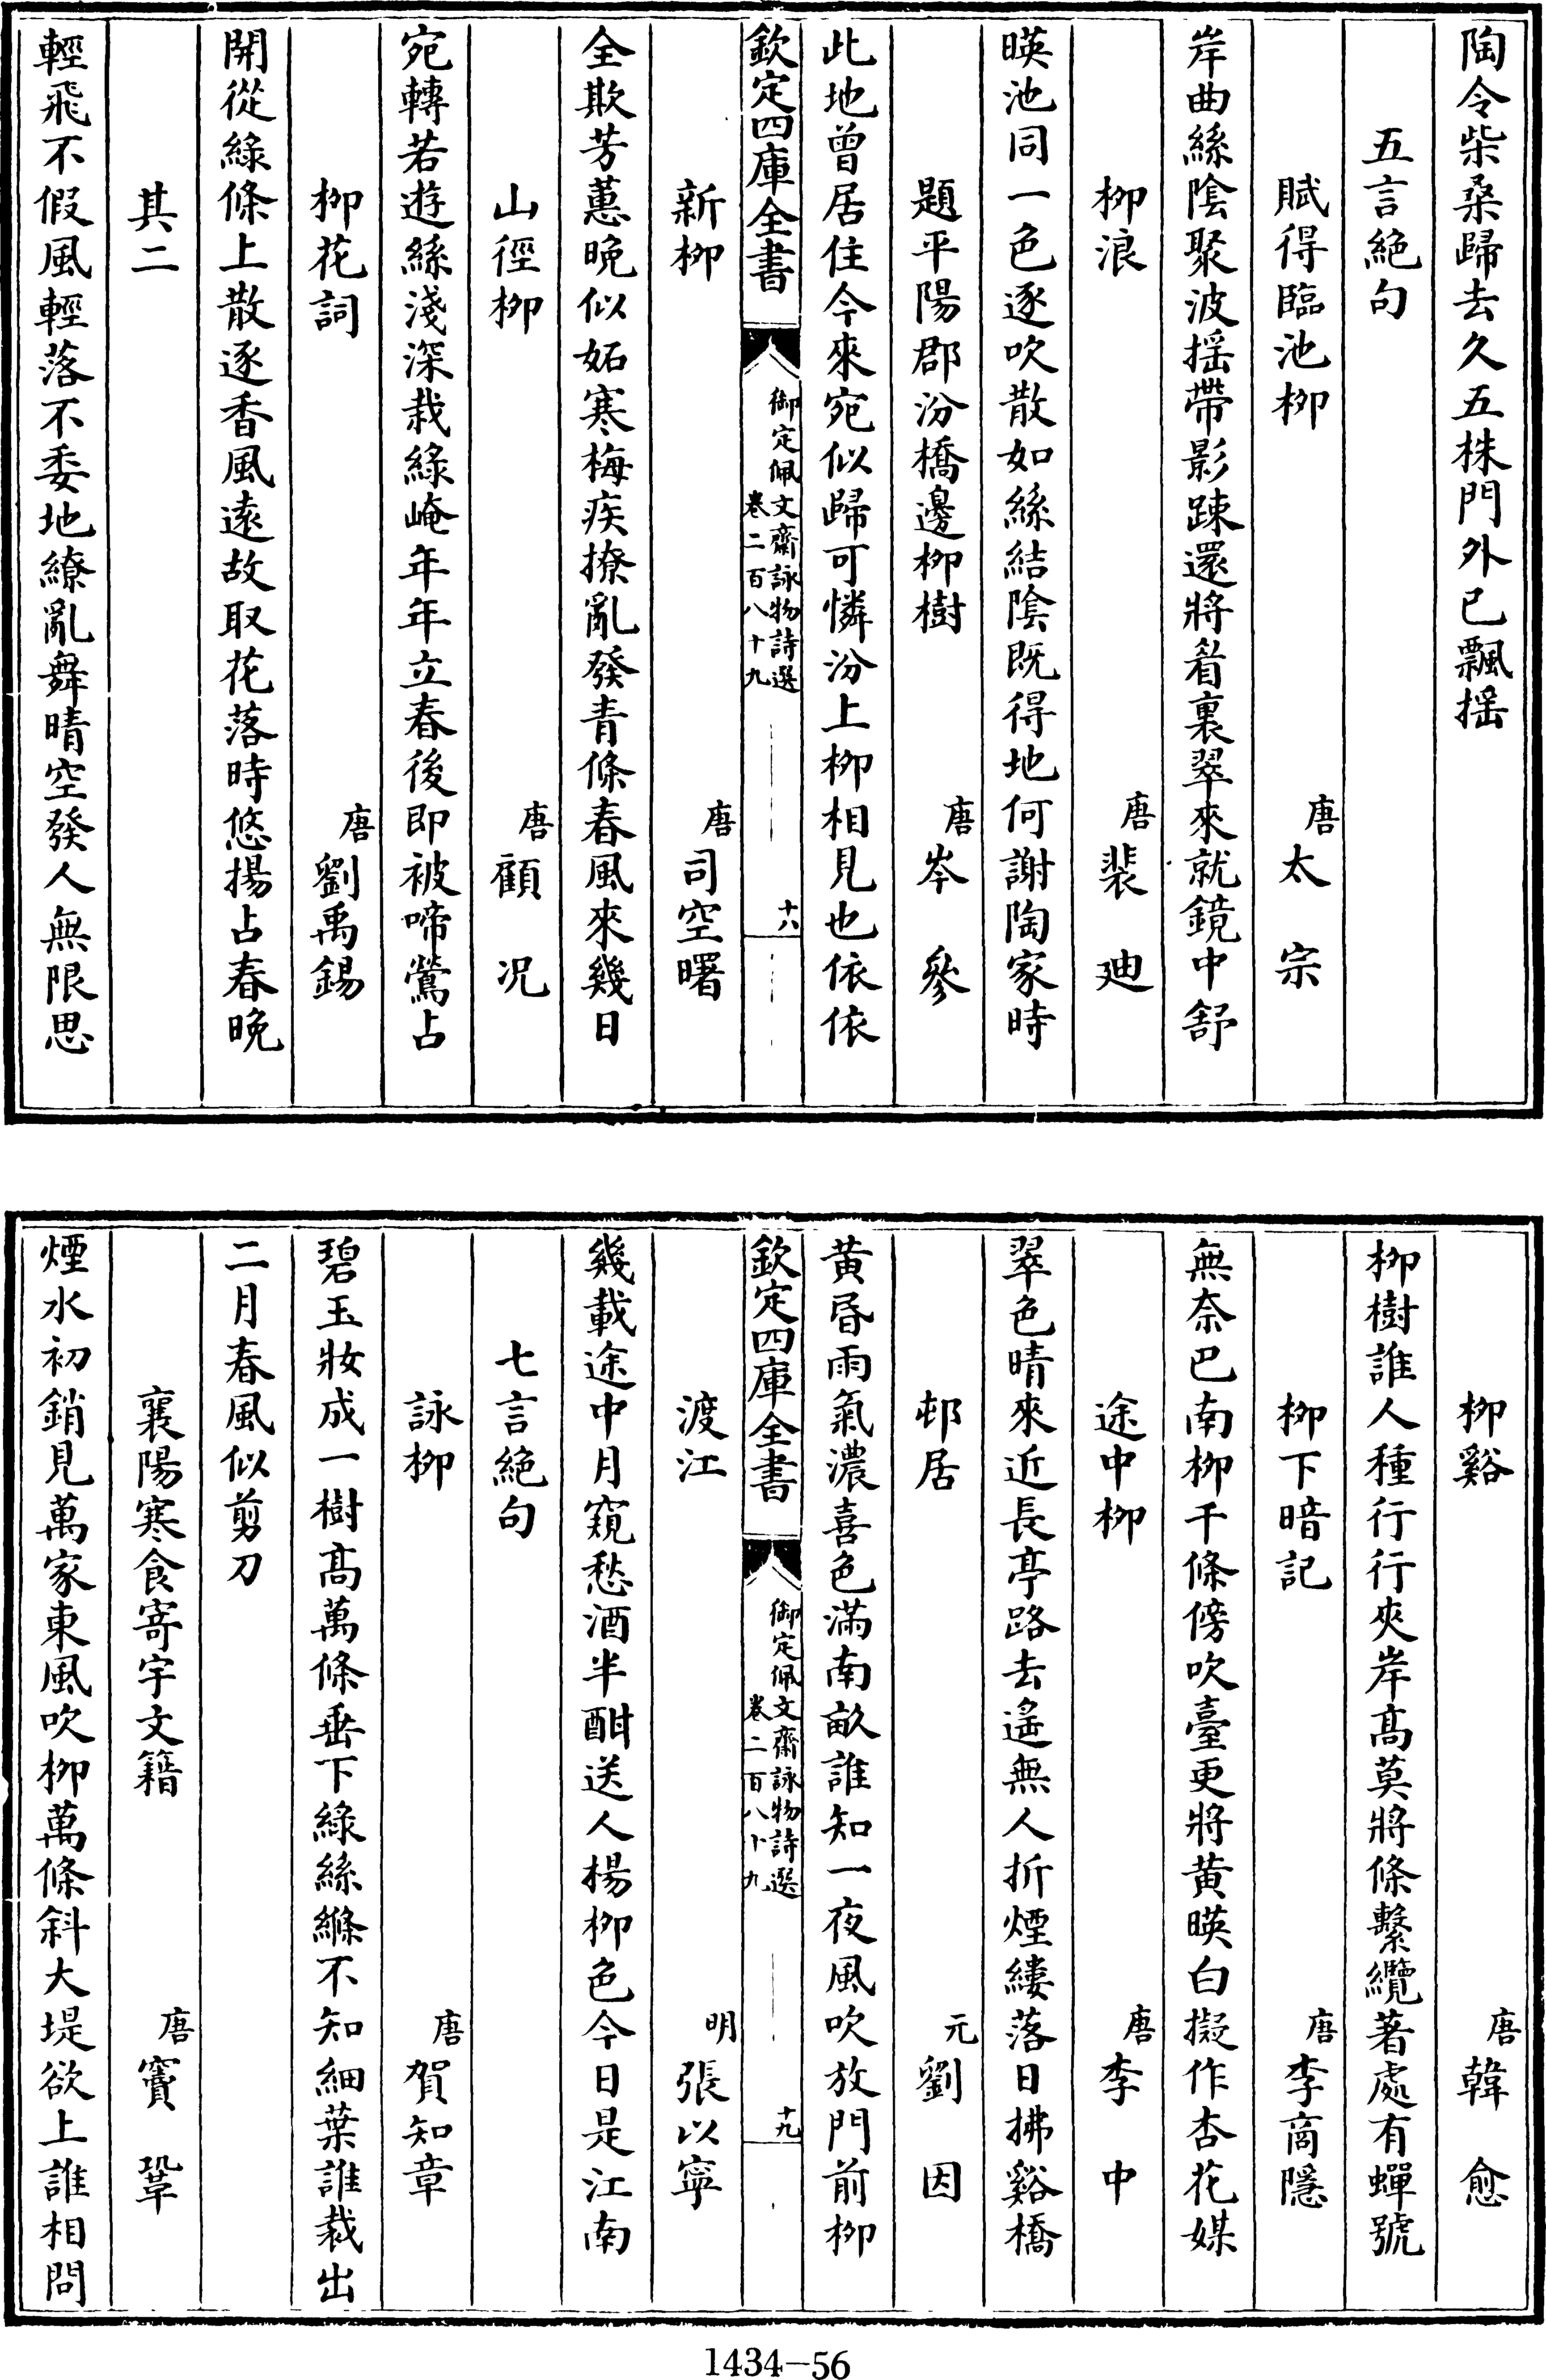 陶令柴桑歸去久五株門外已飄揺
五言絕句
賦得臨池栁 唐太宗
岸曲絲陰聚波揺帶影踈還將眉裏翠來就鏡中舒
栁浪 唐裴廸
暎池同一色逐吹散如絲結隂既得地何謝陶家時
題平陽郡汾橋邊栁樹 唐岑參
此地曾居住今來宛似歸可憐汾上栁相見也依依
欽定四庫全書
御定佩文齋詠物詩選
卷二百八十九
十八
新栁 唐司空曙
全欺芳蕙晚似妬寒梅疾撩亂發青條春風來幾日
山徑栁 唐顧況
宛轉若遊絲淺深栽綠崦年年立春後即被啼鶯占
栁花詞 唐劉禹錫
開從綠條上散逐香風遠故取花落時悠揚占春晚
其二
輕飛不假風輕落不委地繚亂舞晴空發人無限思
栁谿 唐韓愈
栁樹誰人種行行夾岸髙莫將條繫纜著處有蟬號
栁下暗記 唐李商隱
無奈巴南栁千條傍吹臺更將黃暎白擬作杏花媒
途中栁 唐李中
翠色晴來近長亭路去遙無人折煙縷落日拂谿橋
邨居 元劉因
黃昏雨氣濃喜色滿南畝誰知一夜風吹放門前栁
欽定四庫全書
御定佩文齋詠物詩選
卷二百八十九
十九
渡江 明張以寧
幾載途中月窺愁酒半酣送人楊栁色今日是江南
七言絕句
詠栁 唐賀知章
碧玉妝成一樹髙萬條垂下綠絲縧不知細葉誰裁出
二月春風似剪刀
襄陽寒食寄宇文籍 唐竇鞏
煙水初銷見萬家東風吹栁萬條斜大堤欲上誰相問
1434—56